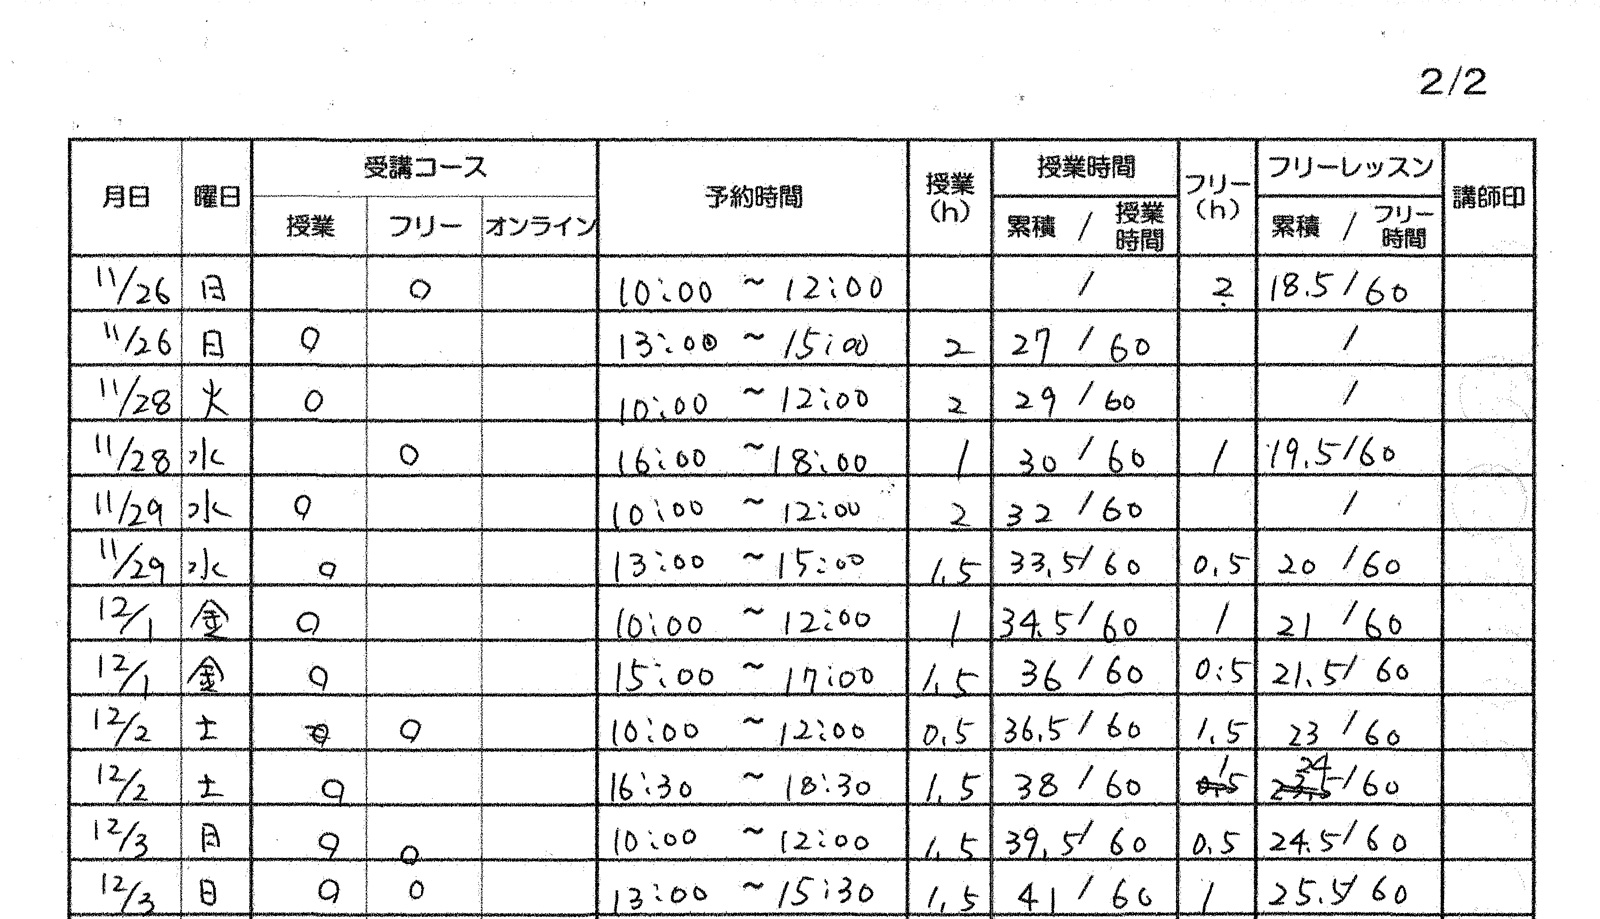 2/2
月日 曜日 受講コース 予約時間 授業(h) 授業時間 フリー(h) フリーレッスン 講師印
授業 フリー オンライン 累積 / 授業時間 累積 / フリー時間
11/26 日 ○ 10:00 ~ 12:00 / 2 18.5/60
11/26 日 ○ 13:00 ~ 15:00 2 27/60 /
11/28 火 ○ 10:00 ~ 12:00 2 29/60 /
11/28 水 ○ 16:00 ~ 18:00 1 30/60 1 19.5/60
11/29 水 ○ 10:00 ~ 12:00 2 32/60 /
11/29 水 ○ 13:00 ~ 15:00 1.5 33.5/60 0.5 20/60
12/1 金 ○ 10:00 ~ 12:00 1 34.5/60 1 21/60
12/1 金 ○ 15:00 ~ 17:00 1.5 36/60 0.5 21.5/60
12/2 土 ○ 10:00 ~ 12:00 0.5 36.5/60 1.5 23/60
12/2 土 ○ 16:30 ~ 18:30 1.5 38/60 1 24/60
12/3 日 ○ ○ 10:00 ~ 12:00 1.5 39.5/60 0.5 24.5/60
12/3 日 ○ ○ 13:00 ~ 15:30 1.5 41/60 1 25.5/60